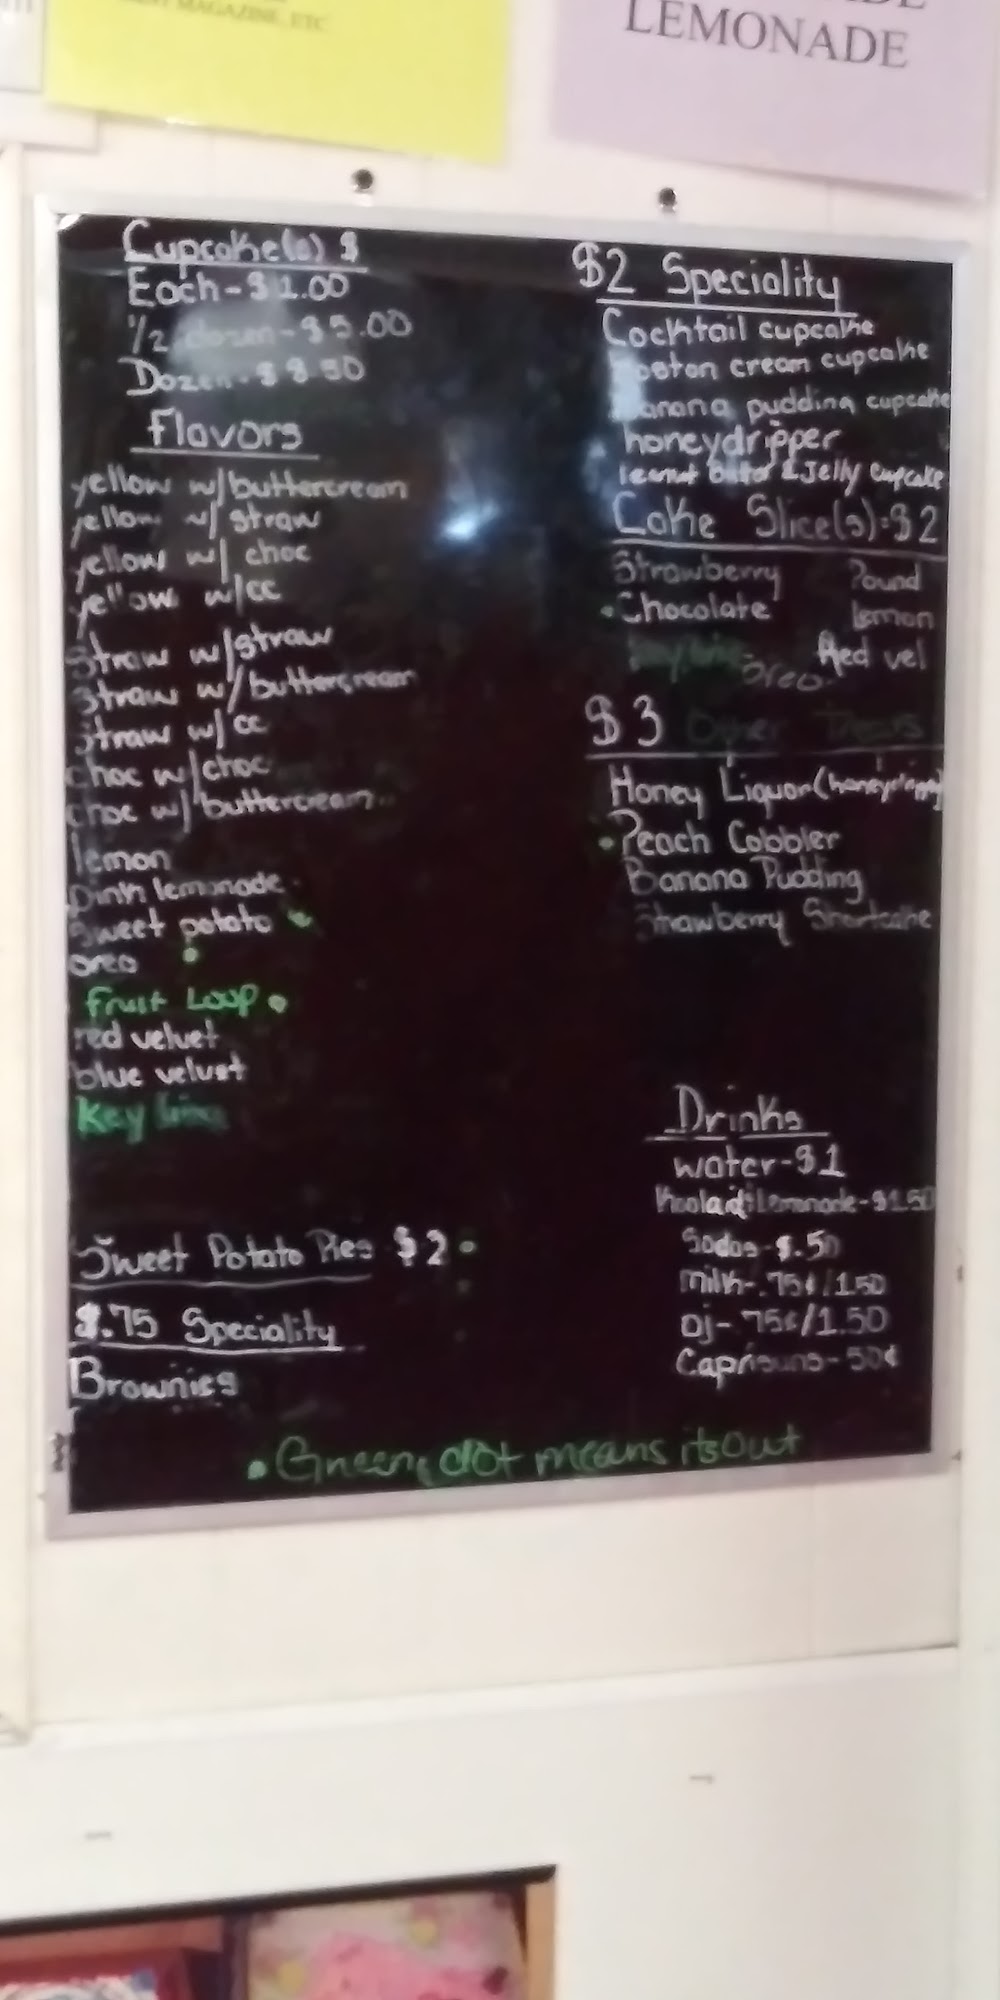 MAGAZINE, ETC
LEMONADE
Cupcake(s) $
Each-$1.00
1/2 dozen-$5.00
Dozen-$8.50
Flavors
yellow w/buttercream
yellow w/ straw
yellow w/ choc
yellow w/cc
Straw w/straw
Straw w/buttercream
Straw w/ cc
choc w/choc
choc w/ buttercream
lemon
Pink lemonade
Sweet potato
oreo
Fruit Loop
red velvet
blue velvet
Key lime
Sweet Potato Pies $2
$.75 Speciality
Brownies
$2 Speciality
Cocktail cupcake
Boston cream cupcake
Banana pudding cupcake
honeydripper
Peanut Butter & Jelly Cupcake
Cake Slice(s)=$2
Strawberry Pound
Chocolate lemon
Key lime Red vel
Oreo
$3 Other Treats
Honey Liquor(honeydripper)
Peach Cobbler
Banana Pudding
Strawberry Shortcake
Drinks
water-$1
Koolaid/Lemonade-$1.50
Sodas-$.50
milk-.75¢/1.50
oj-75¢/1.50
Caprisuns-50¢
Green dot means its out